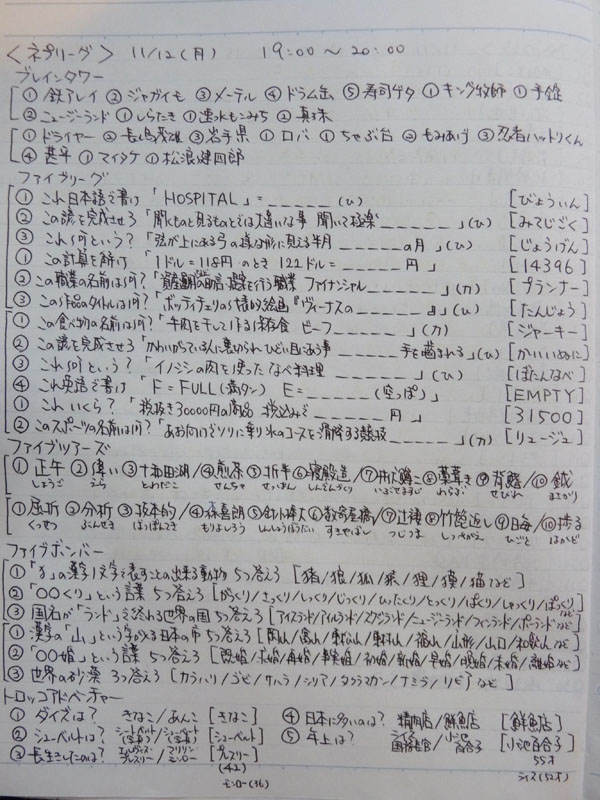 <ネプリーグ> 11/12(月) 19:00〜20:00
ブレインタワー
① 鉄アレイ ② ジャガイモ ③ メーテル ④ ドラム缶 ⑤ 寿司ゲタ ① キング牧師 ① 手錠
② ニュージーランド ① しらたき ① 速水もこみち ② 真珠
① ドライヤー ② 長嶋茂雄 ③ 岩手県 ① ロバ ① ちゃぶ台 ② もみあげ ③ 忍者ハットリくん
④ 甚平 ① マイタケ ① 松浪健四郎
ファイブリーグ
① これ日本語で書け 「HOSPITAL」=______(ひ) [びょういん]
② この諺を完成させろ 「聞くものと見るものとでは大違いな事 聞いて極楽______」(ひ) [みてじごく]
③ これ何という? 「弦が上にある弓の様な形に見える半月 ______の月」(ひ) [じょうげん]
① この計算を解け 「1ドル=118円のとき 122ドル=______円」 [14396]
② この職業の名前は何? 「資産運用の助言・提案を行う職業 ファイナンシャル______」(カ) [プランナー]
③ この作品のタイトルは何? 「ボッティチェリの絵画『ヴィーナスの______』」(ひ) [たんじょう]
① この食べ物の名前は何? 「牛肉を干して作る保存食 ビーフ______」(カ) [ジャーキー]
② この諺を完成させろ 「かわいがっている人に裏切られひどい目にあう事 ______手を噛まれる」(ひ) [かいいぬに]
③ これ何という? 「イノシシの肉を使ったなべ料理 ______」(ひ) [ぼたんなべ]
④ これ英語で書け 「F=FULL(満タン) E=______(空っぽ)」 [EMPTY]
① これいくら? 「税抜き30000円の商品 税込みで______円」 [31500]
② このスポーツの名前は何? 「あお向けでソリに乗り氷のコースを滑降する競技______」(カ) [リュージュ]
ファイブツアーズ
① 正午 ② 偉い ③ 十和田湖/④ 煎茶 ⑤ 折半 ⑥ 寝殿造/⑦ ⑧ 藁葺き ⑨ 背鰭/⑩ 鉞
しょうご えら とわだこ せんちゃ せっぱん しんでんづくり わらぶき せびれ まさかり
① 屈折 ② 分析 ③ 抜本的/④ 森喜朗 ⑤ ⑥ 数寄屋橋/⑦ 辻褄 ⑧ 竹箆返し ⑨ 日毎/⑩ 捗る
くっせつ ぶんせき ばっぽんてき もりよしろう すきやばし つじつま しっぺがえ ひごと はかど
ファイブボンバー
① 「犭」の漢字1文字で表すことの出来る動物 5つ答えろ [猪/狼/狐/猿/狸/獏/猫など]
② 「○○くり」という言葉 5つ答えろ [がっくり/さっくり/しっくり/じっくり/ひったくり/とっくり/ぱくり/しゃっくり/ぱっくりなど]
③ 国名が「ランド」で終わる世界の国 5つ答えろ [アイスランド/アイルランド/スワジランド/ニュージーランド/フィンランド/ポーランドなど]
① 漢字の「山」という字が入る日本の市 5つ答えろ [岡山/富山/東松山/東村山/福山/山形/山口/和歌山など]
② 「○○婚」という言葉 5つ答えろ [既婚/求婚/再婚/事実婚/初婚/新婚/早婚/晩婚/未婚/離婚など]
③ 世界の砂漠 3つ答えろ [カラハリ/ゴビ/サハラ/シリア/タクラマカン/ナミブ/リビアなど]
トロッコアドベンチャー
① ダイズは? きなこ/あんこ [きなこ]
② シューベルトは? シートベルト(写真)/シューベルト(写真) [シューベルト]
③ 長生きしたのは? エルヴィス・プレスリー/マリリン・モンロー [プレスリー]
(42)
モンロー(36)
④ 日本に多いのは? 精肉店/鮮魚店 [鮮魚店]
⑤ 年上は? ライス国務長官/小池百合子 [小池百合子]
55才
ライス(52才)